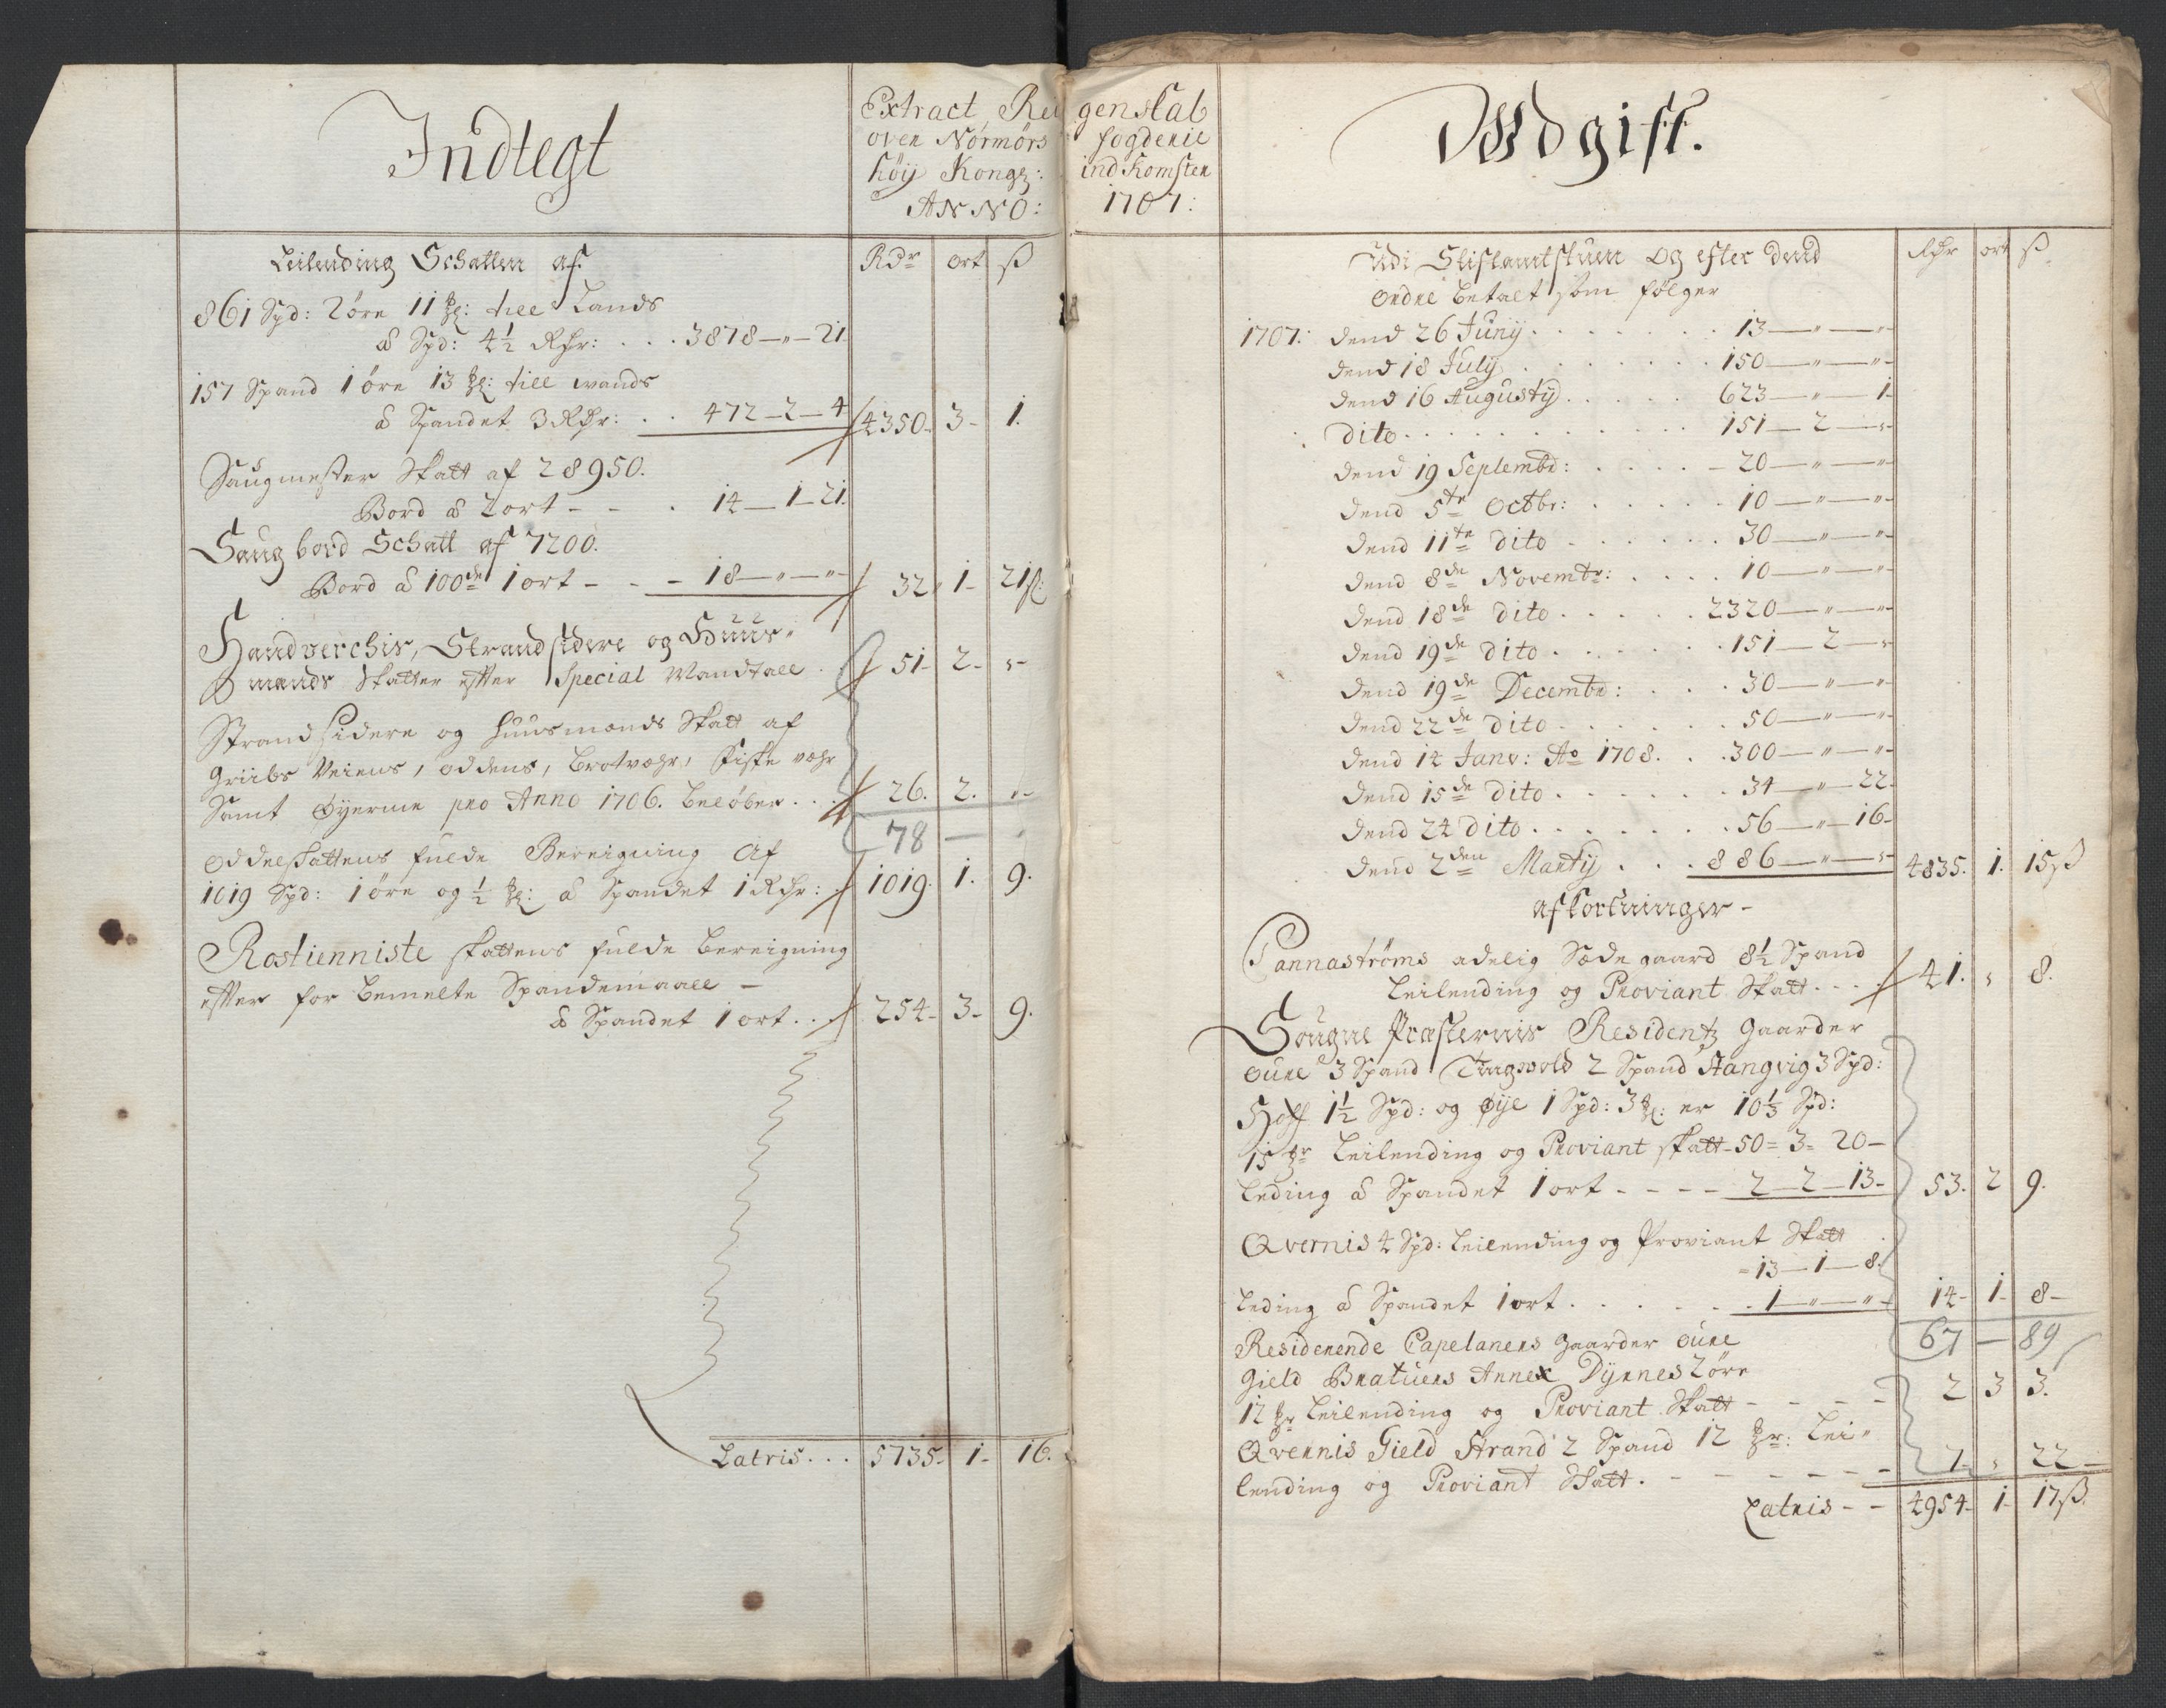 Indtegt
Extract Regenskab
over Normørs fogderie
høij Kongl: indkomsten
ANNO: 1707:
Leilending Schatten af
Rdr ort ß
861 Spd: 2 øre 11 : till Lands
à Spd: 4½ Rdr: . . . 3878 — " — 21.
157 Spand 1 øre 13 : till vands
à Spandet 3 Rdr: . . 472 — 2 — 4 4350. 3 - 1.
Saugmester Skatt af 28950.
Bord à 2 ort - - . 14 — 1 — 21.
Saug bord Schatt af 7200.
Bord à 100de 1 ort - - - 18 — " — " — 32 " 1 - 21ß:
Handverchis, Strandsidere og Huus-
mænds Skatter efter Special Mandtall . 51 - 2 - " -
Strandsidere og huusmænds Skatt af
Griibs Veiens, oddens, Brotvæhr, Fiske væhr
Samt Øyerme pro Anno 1706. beløber . . 26. 2. " -
78 —
Oddelskattens fulde Bereigning Af
1019 Spd: 1 øre og ½ : à Spandet 1 Rdr: . 1019. 1. 9.
Rostienniste skattens fulde bereigning
efter for bemelte Spandemaall —
à Spandet 1 ort . . 254 - 3 - 9.
Latris . . . 5735 - 1 - 16.
Udgift.
Udi Stiftamtstuen Og efter dend
Rdr ort ß
Ordre betalt som følger
1707: dend 26 Junij . . . . . . . 13 — " — " -
dend 18 Julij . . . . . . . 150 — " — " -
dend 16 Augustij . . . . . 623 — " — 1 -
dito . . . . . . . . . . . 151 — 2 — " -
dend 19 Septembr: . . . . - 20 — " — " -
dend 5te Octbr: . . . . . 10 — " — " -
dend 11te dito . . . . . . 30 — " — " -
dend 8de Novembr: . . . . 10 — " — " -
dend 18de dito . . . . . 2320 — " — " -
dend 19de dito . . . . . . 151 — 2 — " -
dend 19de Decembr: . . . 30 — " — " -
dend 22de dito . . . . . . 50 — " — " -
dend 14 Janv: Ao 1708. . . 300 — " — " -
dend 15de dito . . . . . . 34 — " — 22.
dend 24 dito . . . . . . . 56 — " — 16 -
dend 2den Martij . . . 886 — " — " - 4835. 1. 15ß
afkortninger -
Tannastrøms adelig Sæde gaard 8½ Spand
Leilending og Proviant Skatt . . . . 41. " 8.
Sougne Præsternis Residentz Gaarder
Sure 3 Spand Tingvold 2 Spand Stangvig 3 Spd:
Hoff 1½ Spd: og Øije 1 Spd: 3 : er 10⅓ Spd:
15 Leilending og Proviant skatt - 50 = 3 = 20 —
Leding à Spandet 1 ort - - - - 2 — 2 — 13 - 53. 2 9.
Qvernis 4 Spd: Leilending og Proviant Skatt
= 13 — 1 — 8.
Leding à Spandet 1 ort . . . . . . . 1 — " — " - 14 - 1 - 8 —
67 — 89
Residerende Capelanens Gaarder Sure
Gield Bratuers Annex Dyrnes 2 øre
12 Leilending og Proviant Skatt - - - - 2 3 3.
Qvernis Gield Strand 2 Spand 12 : Lei-
lending og Proviant Skatt . - - - - - - 7 - " 22 —
Latris - - 4954 - 1 - 17ß.